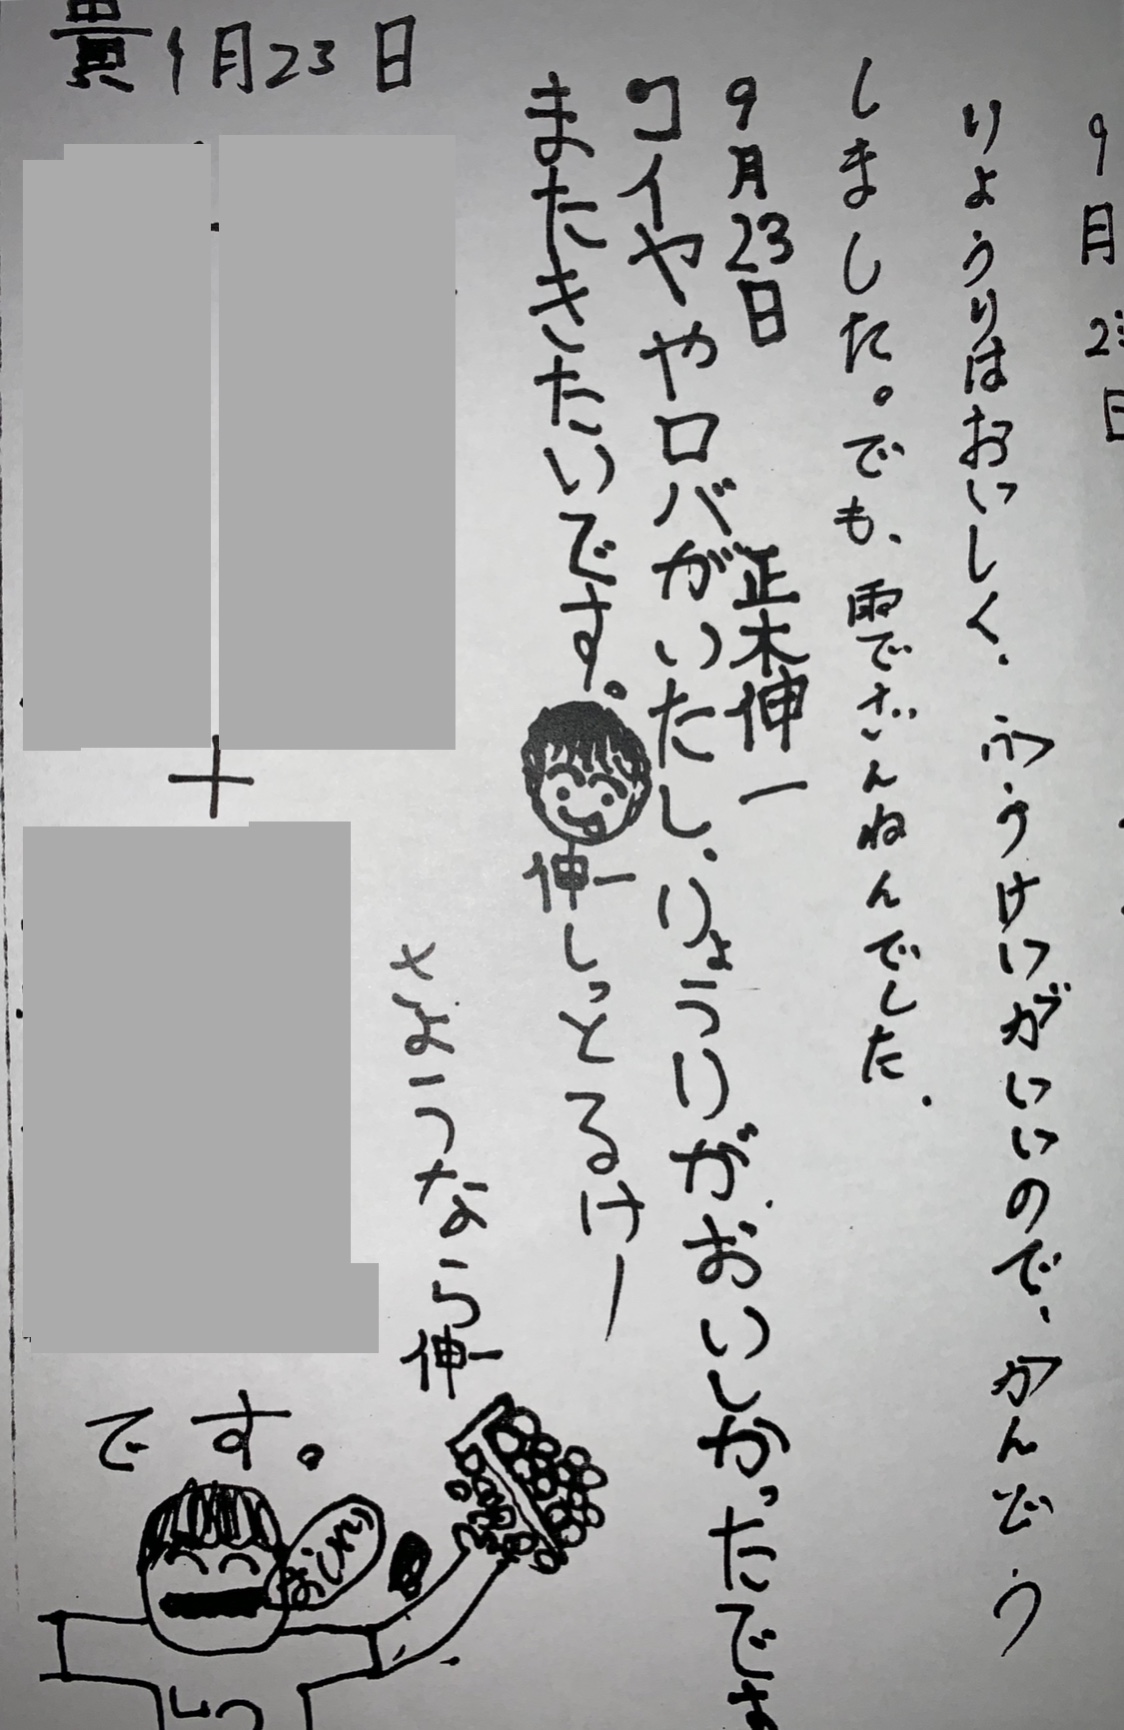 9月23日
りょうりはおいしく、ふうけいがいいので、かんどう
しました。でも、雨でざんねんでした.
9月23日 正木伸一
コイややロバがいたし、りょうりがおいしかったです
またきたいです。
伸一しっとるけー
さようなら伸一
貴9月23日
です。
おいしい